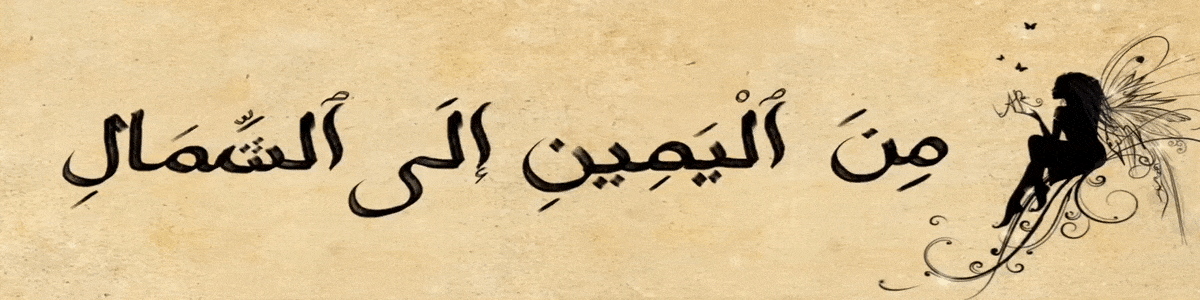 مِنَ ٱلْيَمِينِ إِلَى ٱلشِّمَالِ